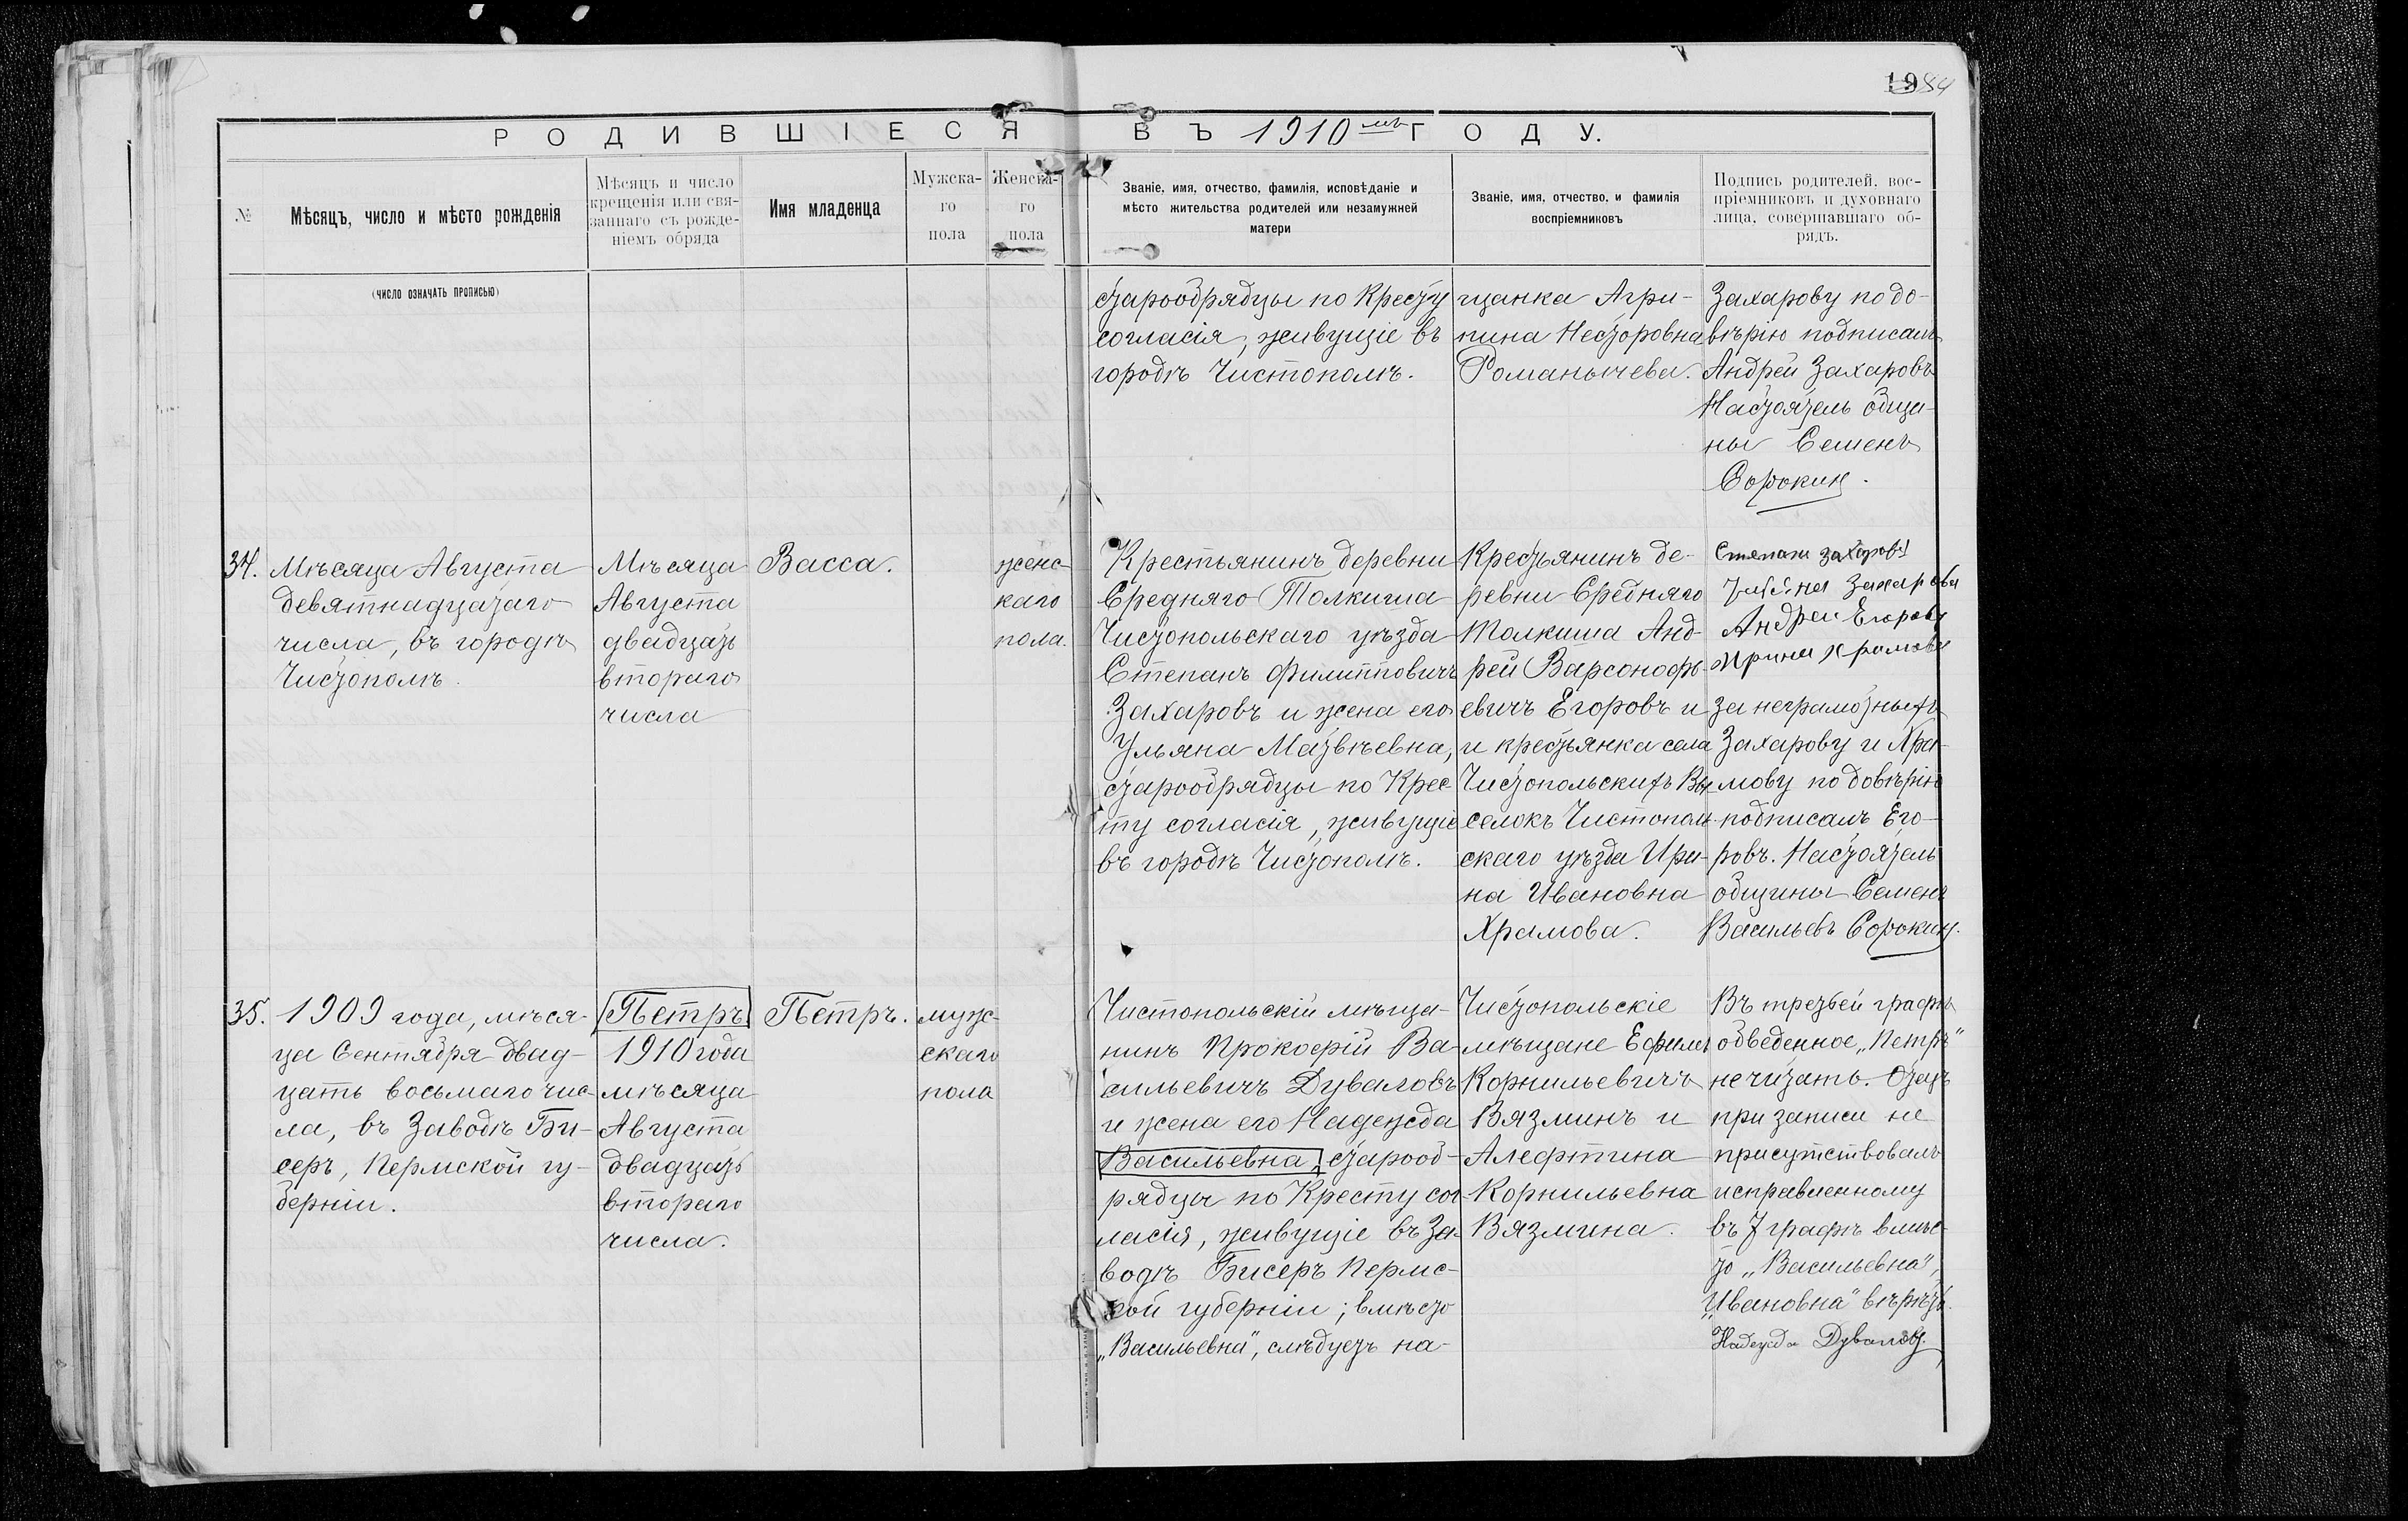 1984
РОДИВШІЕСЯ ВЪ 1910мъ ГОДУ.
№
Мѣсяцъ, число и мѣсто рожденія
Мѣсяцъ и число
крещенія или свя-
заннаго съ рожде-
ніемъ обряда
Имя младенца
Мужска-
го
пола
Женска-
го
пола
Званіе, имя, отчество, фамилія, исповѣданіе и
мѣсто жительства родителей или незамужней
матери
Званіе, имя, отчество, и фамилія
воспріемниковъ
Подпись родителей, вос-
пріемниковъ и духовнаго
лица, совершавшаго об-
рядъ.
(число означать прописью)
старообрядцы по Кресту
согласія, живущіе въ
городѣ Чистополѣ.
щанка Агри-
пина Несторовна
Романычева.
Захарову по до-
вѣрію подписалъ
Андрей Захаровъ
Настоятель общи-
ны Семенъ
Сорокин.
34.
Мѣсяца Августа
девятнадцатаго
числа, въ городѣ
Чистополѣ.
Мѣсяца
Августа
двадцать
втораго
числа
Васса.
женс-
каго
пола.
Крестьянинъ деревни
Средняго Толкиша
Чистопольскаго уѣзда
Степанъ Филипповичъ
Захаровъ и жена его
Ульяна Матвѣевна,
старообрядцы по Крес-
ту согласія, живущіе
въ городѣ Чистополѣ.
Крестьянинъ де-
ревни Средняго
Толкиша Анд-
рей Варсонофь-
евичъ Егоровъ и
и крестьянка села
Чистопольскихъ Вы-
селокъ Чистополь-
скаго уѣзда Ири-
на Ивановна
Храмова.
Степанъ Захаровъ
Захарова
Андреи Егоровъ
Ирина Храмова
за неграмотныхъ
Захарову и Хра-
мову по довѣрію
подписалъ Его-
ровъ. Настоятель
общины Семенъ
Васильевъ Сорокин.
35.
1909 года, мѣся-
ца Сентября двад-
цать восьмаго чис-
ла, въ Заводѣ Би-
серъ, Пермской гу-
берніи.
Петръ
1910 года
мѣсяца
Августа
двадцать
втораго
числа.
Петръ.
мужс-
скаго
пола
Чистопольскій мѣща-
нинъ Прокофій Ва-
сильевичъ Дуваловъ
и жена его Надежда
Васильевна, старооб-
рядцы по Кресту сог-
ласія, живущіе въ За-
водѣ Бисеръ Пермс-
кой губерніи; вмѣсто
„Васильевна", слѣдуетъ на-
Чистопольскіе
мѣщане Ефимъ
Корнильевичъ
Вязминъ и
Алефтина
Корнильевна
Вязмина.
Въ третьей графѣ
обведенное „Петръ"
не читать. Отецъ
при записи не
присутствовалъ
исправленному
въ 7 графѣ вмѣс-
то „Васильевна",
„Ивановна" вѣрить.
Надежда Дувалова.